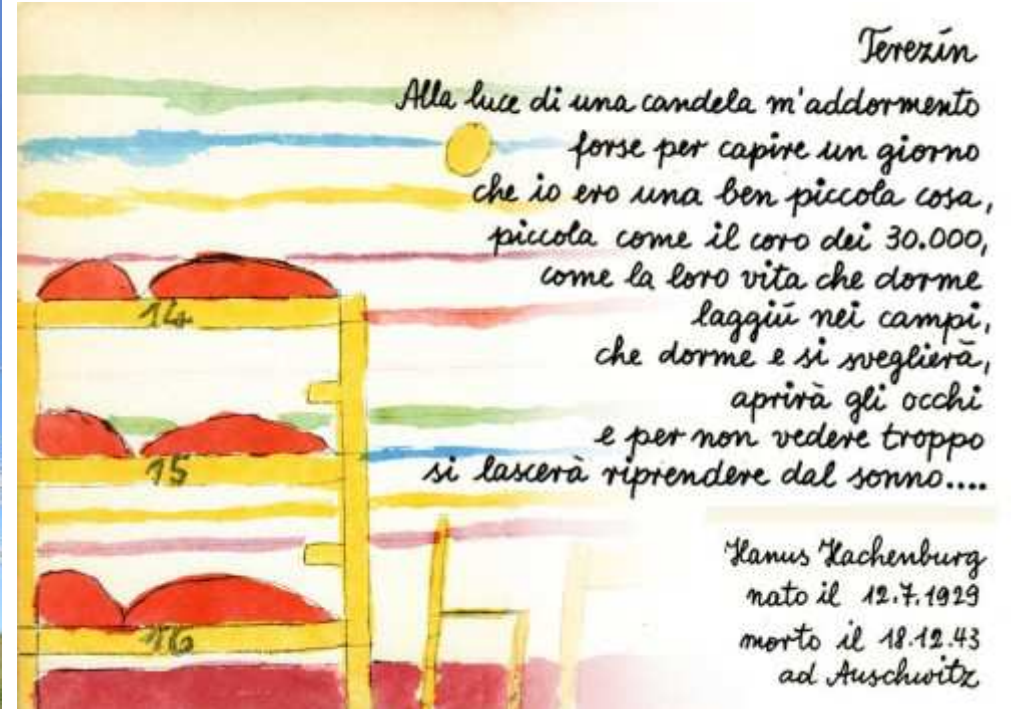 Terezín
Alla luce di una candela m'addormento
forse per capire un giorno
che io ero una ben piccola cosa,
piccola come il coro dei 30.000,
come la loro vita che dorme
laggiù nei campi,
che dorme e si sveglierà,
aprirà gli occhi
e per non vedere troppo
si lascerà riprendere dal sonno....
14
15
16
Hanus Hachenburg
nato il 12.7.1929
morto il 18.12.43
ad Auschwitz